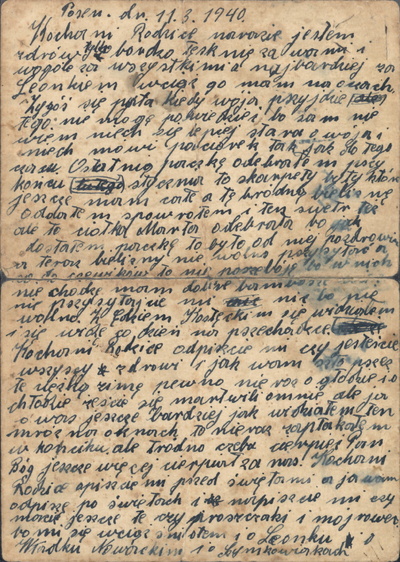 Posen. dn. 11.3. 1940.
Kochani Rodzice narazie jestem
zdrów tylko bardzo tesknię za wami i
wogóle za wszystkimi a najbardziej za
Leonkiem wciąż go mam na oczach.
Zygoś się pyta kiedy wojna przyjdzie
tego nie mogę powiedzieć bo sam nie
wiem niech się lepiej stara o wójta i
niech mówi paciorek tak jak do tego
czasu. Ostatnio paczkę odebrałem przy
końcu stycznia to skarpety były które
jeszcze mam całe a tę brudną bieliznę
oddałem spowrotem i ten swetr też
ale to ciotka Marta odebrała bo jak
dostałem paczkę to było od niej pozdrowienie
a teraz bielizny nie wolno przysyłać a
co do to mi nie potrzebuję bo w nich
nie chodzę mam dobre
nie przysyłajcie mi nic bo nie
wolno. Z Edziem się widziałem
i się widzę co dzień na przechadzce
Kochani Rodzice odpiszcie mi czy jesteście
wszyscy zdrowi i jak wam szło przez
tę ciężką zimę pewno nie raz o głodzie i o
chłodzie jeszcze się martwili o mnie ale ja
o was jeszcze bardziej jak widziałem ten
mróz na oknach to nieraz zapłakałem
w kąciku, ale trudno trzeba cierpieć Pan
Bóg jeszcze więcej cierpiał za nas. Kochani
Rodzice opiszcie mi przed świętami a ja wam
odpiszę po świętach i napiszcie mi czy
macie jeszcze te prosiaki i mój rower,
bo mi się wciąż śni o tem i o Leonku i o
Władku Nawrockim i o